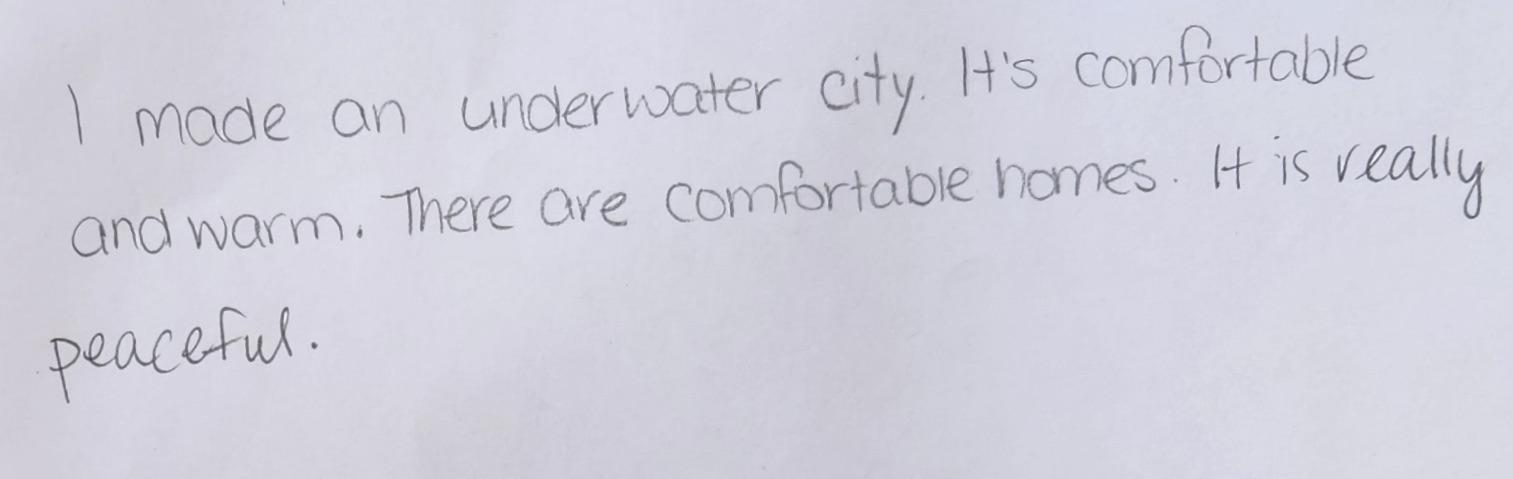 I made an underwater city. It's comfortable
and warm. There are comfortable homes. It is really
peaceful.